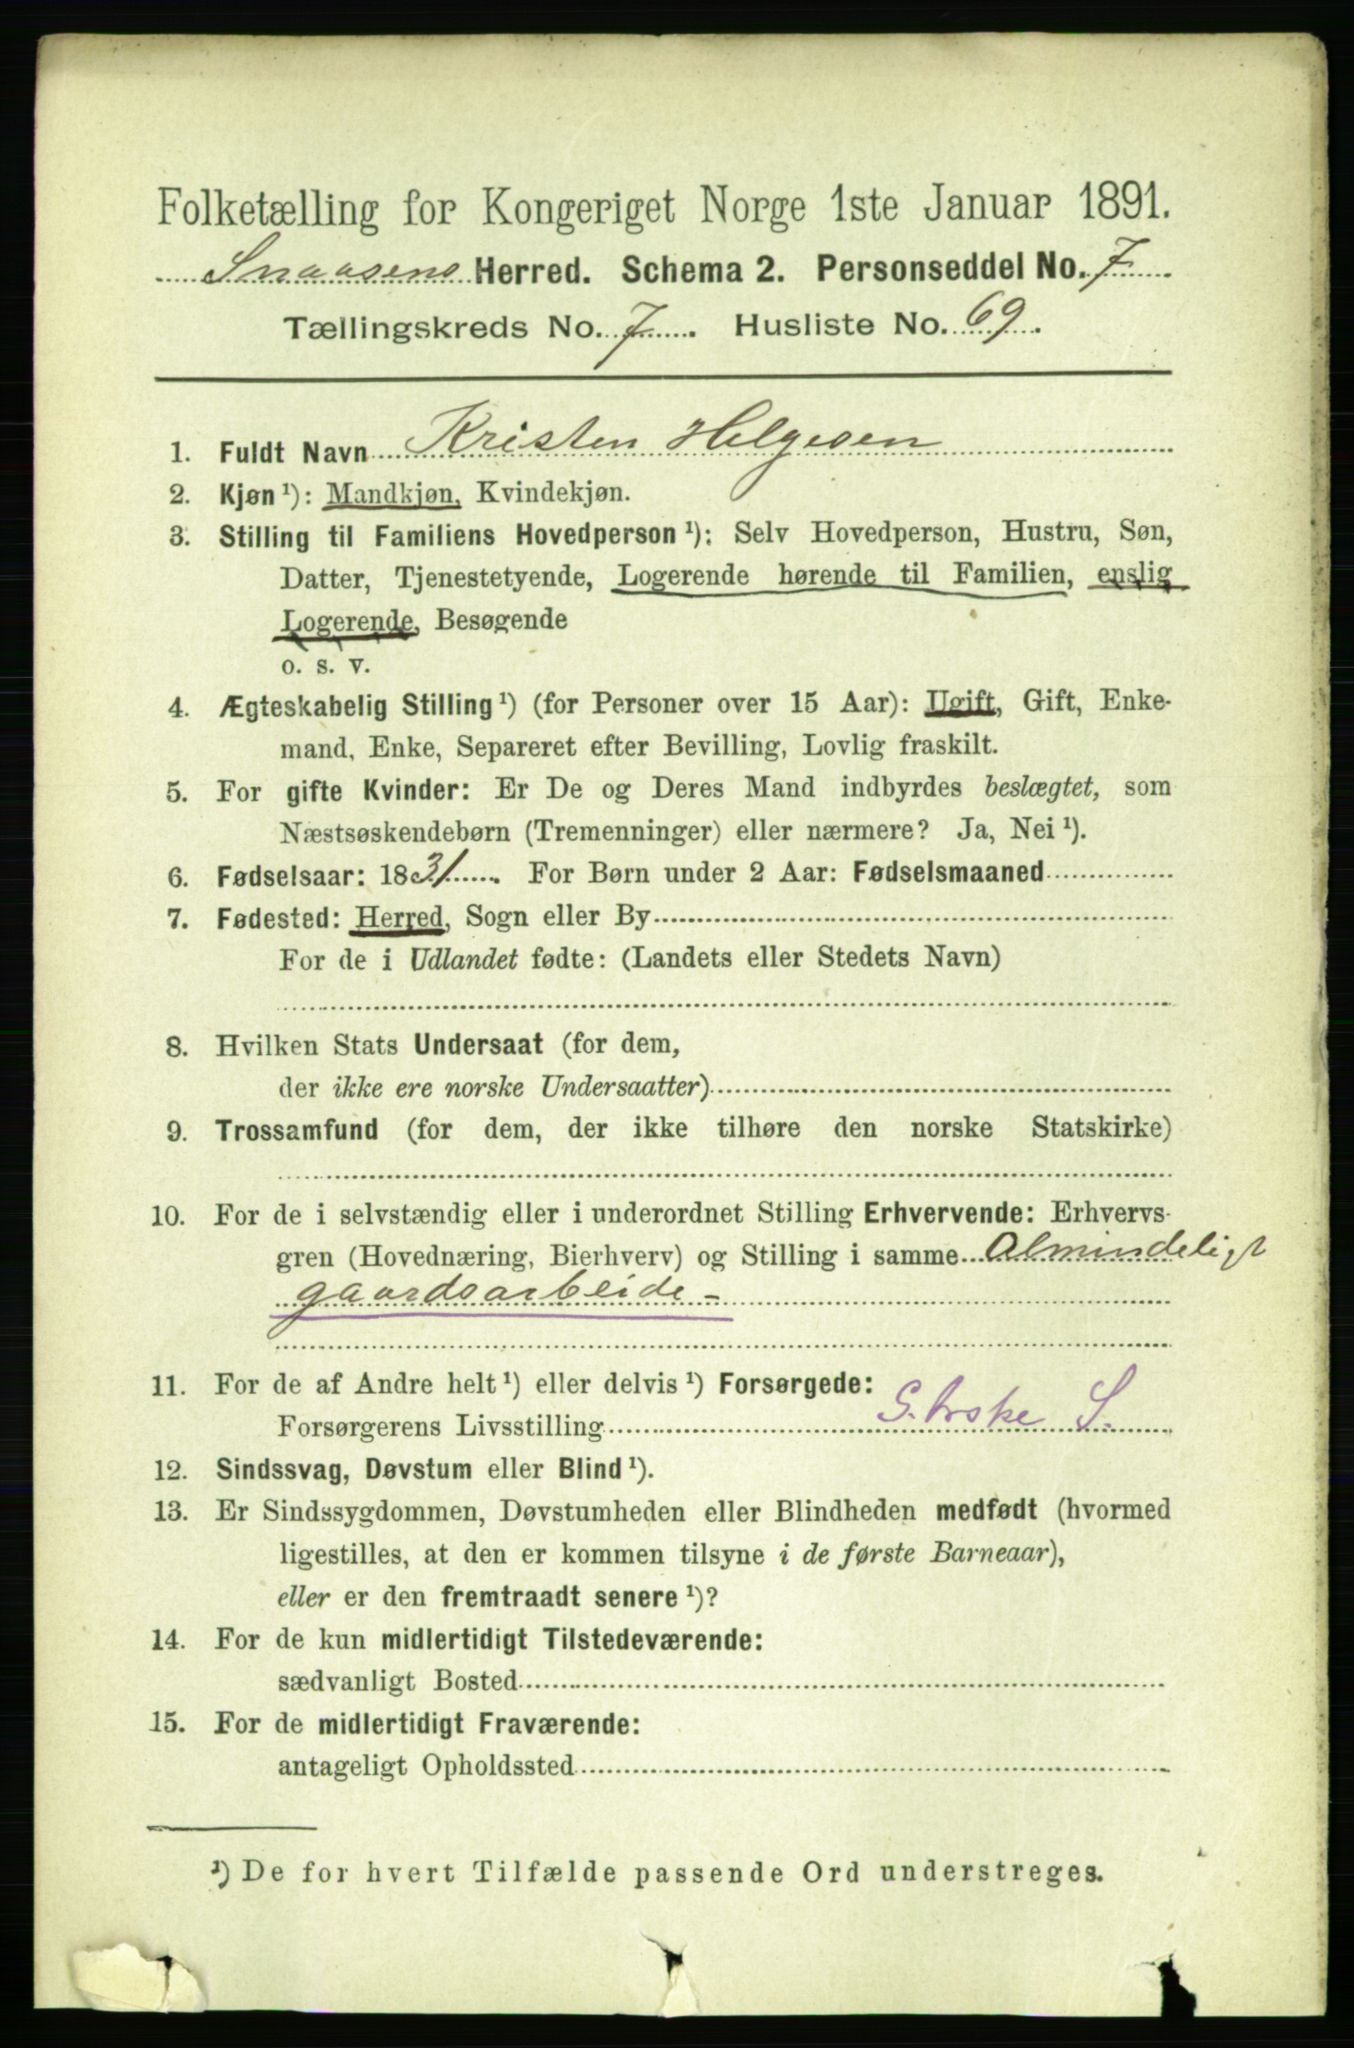 Folketælling for Kongeriget Norge 1ste Januar 1891.
Snaasens Herred. Schema 2. Personseddel No. 7
Tællingskreds No. 7. Husliste No. 69.
1. Fuldt Navn Kristen Helgesen
2. Kjøn ¹): Mandkjøn, Kvindekjøn.
3. Stilling til Familiens Hovedperson ¹): Selv Hovedperson, Hustru, Søn,
Datter, Tjenestetyende, Logerende hørende til Familien, enslig
Logerende, Besøgende
o. s. v.
4. Ægteskabelig Stilling ¹) (for Personer over 15 Aar): Ugift, Gift, Enke-
mand, Enke, Separeret efter Bevilling, Lovlig fraskilt.
5. For gifte Kvinder: Er De og Deres Mand indbyrdes beslægtet, som
Næstsøskendebørn (Tremenninger) eller nærmere? Ja, Nei ¹).
6. Fødselsaar: 1831. For Børn under 2 Aar: Fødselsmaaned
7. Fødested: Herred, Sogn eller By
For de i Udlandet fødte: (Landets eller Stedets Navn)
8. Hvilken Stats Undersaat (for dem,
der ikke ere norske Undersaatter)
9. Trossamfund (for dem, der ikke tilhøre den norske Statskirke)
10. For de i selvstændig eller i underordnet Stilling Erhvervende: Erhvervs-
gren (Hovednæring, Bierhverv) og Stilling i samme Almindeligt
gaardsarbeide -
11. For de af Andre helt ¹) eller delvis ¹) Forsørgede:
Forsørgerens Livsstilling S.
12. Sindssvag, Døvstum eller Blind ¹).
13. Er Sindssygdommen, Døvstumheden eller Blindheden medfødt (hvormed
ligestilles, at den er kommen tilsyne i de første Barneaar),
eller er den fremtraadt senere ¹)?
14. For de kun midlertidigt Tilstedeværende:
sædvanligt Bosted
15. For de midlertidigt Fraværende:
antageligt Opholdssted
¹) De for hvert Tilfælde passende Ord understreges.